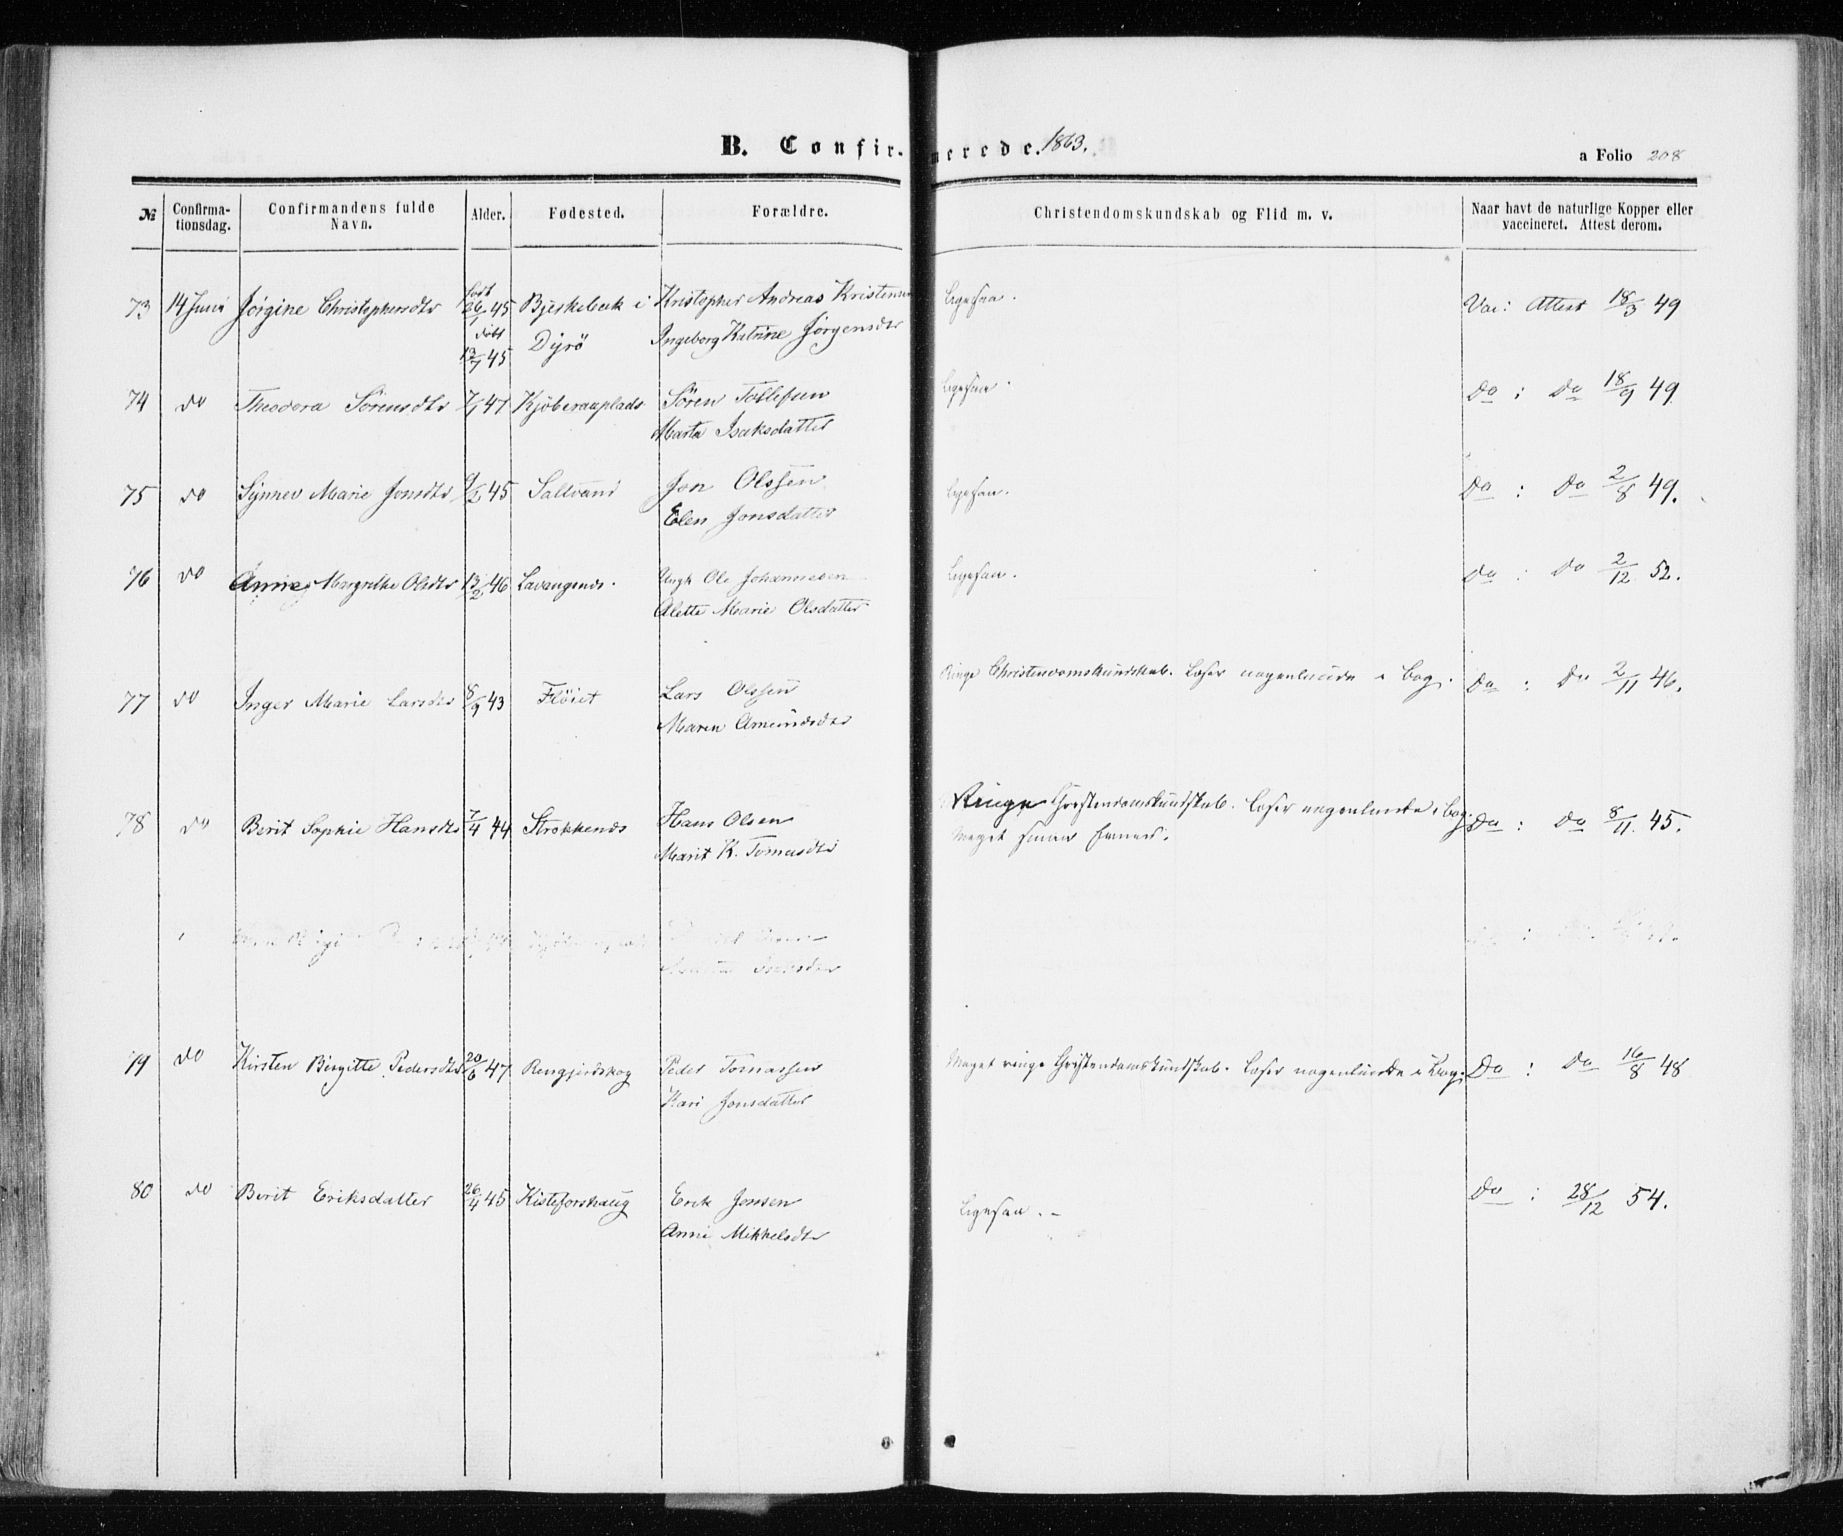 B. Confirmerede. 1863.
a Folio 208
№ Confirmationsdag. Confirmandens fulde Navn. Alder. Fødested. Forældre. Christendomskundskab og Flid m. v. Naar havt de naturlige Kopper eller vaccineret. Attest derom.
73 14 Juni Jörgine Christophersdtr født 26/1 45 Bjerkebæk i Kristopher Andreas Kristensen Ligesaa. Vac: Attest 18/3 49
døbt 13/7 45 Dyrö Ingeborg Katrine Jörgensdtr
74 do Theodora Sörensdtr 7/1 47 Sören Tollefsen Ligesaa. do : do 18/9 49
Marta Isaksdatter
75 do Synnev Marie Jonsdtr 9/2 45 Saltvand Jon Olssen Ligesaa. Do : Do 2/8 49.
Elen Jonsdatter
76 do Anne Margrethe Olsdtr 13/2 46 Lavangsnes. Ungk Ole Johannesen Ligesaa. do : do 2/12 52.
Alette Marie Olsdatter
77 do Inger Marie Larsdtr 8/9 43 Flöiet Lars Olssen Ringe Christendomskundskab. Læser nogenlunde i Bog. Do : Do 2/11 46.
Maren Amundsdtr
78 do Berit Sophie Hansdtr 7/4 44 Strokkenes Hans Olsen Ringe Christendomskundskab. Læser nogenlunde i Bog. Do : Do 8/11 45.
Marit K. Tomasdtr Meget smaa Evner.
79 do Kirsten Birgitte Pedersdtr 20/6 47 Rengjerdskog Peder Tomassen Meget ringe Christendomskundskab. Læser nogenlunde i Bog. Do : Do 16/8 48
Kari Jonsdatter
80 do Berit Eriksdatter 26/4 45 Kisteforshaug Erik Jonsen Ligesaa. - Do : 28/12 54.
Anne Mikkelsdtr